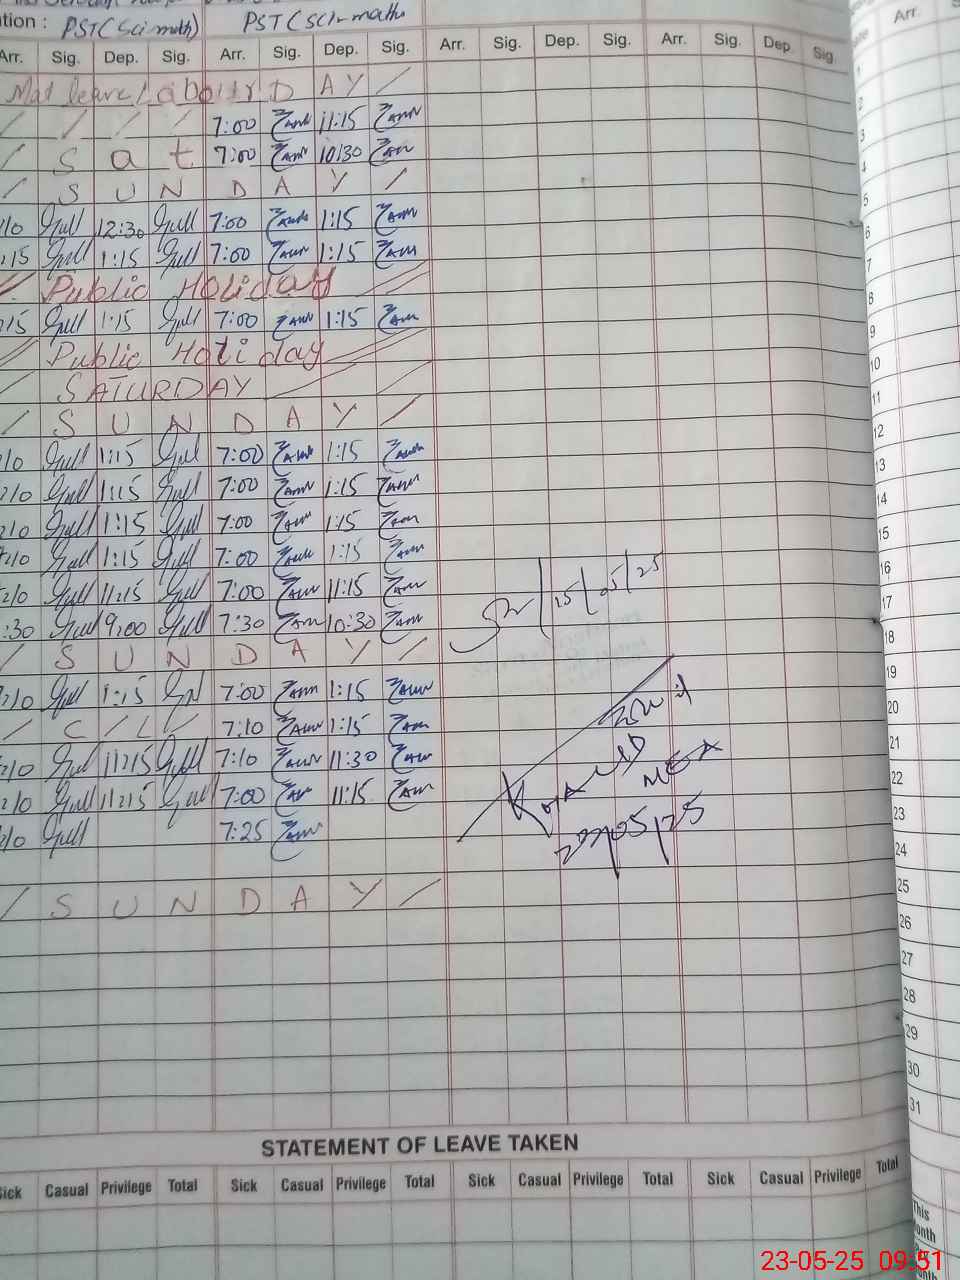 tion : PST(Sci math) PST(Sci-maths
Arr. Sig. Dep. Sig. Arr. Sig. Dep. Sig. Arr. Sig. Dep. Sig. Arr. Sig. Dep. Sig. Arr.
Mat leave/ Labour D A Y /
/ / / / 7:00 Zam 11:15 Zam
/ S a t 7:00 Zam 10:30 Zam
/ S U N D A Y /
/10 Gull 12:30 Gull 7:00 Zam 1:15 Zam
:15 Gull 1:15 Gull 7:00 Zam 1:15 Zam
Public Holiday
15 Gull 1:15 Gull 7:00 Zam 1:15 Zam
Public Holiday
SATURDAY
/ S U N D A Y /
/10 Gull 1:15 Gull 7:00 Zam 1:15 Zam
/10 Gull 1:15 Gull 7:00 Zam 1:15 Zam
/10 Gull 1:15 Gull 7:00 Zam 1:15 Zam
/10 Gull 1:15 Gull 7:00 Zam 1:15 Zam
/10 Gull 11:15 Gull 7:00 Zam 11:15 Zam
:30 Gull 9:00 Gull 7:30 Zam 10:30 Zam
15/05/25
/ S U N D A Y /
/10 Gull 1:15 Gull 7:00 Zam 1:15 Zam
/ C / L / 7:10 Zam 1:15 Zam
/10 Gull 11:15 Gull 7:10 Zam 11:30 Zam
/10 Gull 11:15 Gull 7:00 Zam 11:15 Zam
/10 Gull 7:25 Zam
MEA
22/05/25
/ S U N D A Y /
2
3
4
5
6
7
8
9
10
11
12
13
14
15
16
17
18
19
20
21
22
23
24
25
26
27
28
29
30
31
STATEMENT OF LEAVE TAKEN
Sick Casual Privilege Total Sick Casual Privilege Total Sick Casual Privilege Total Sick Casual Privilege Total
This
Month
23-05-25 09:51